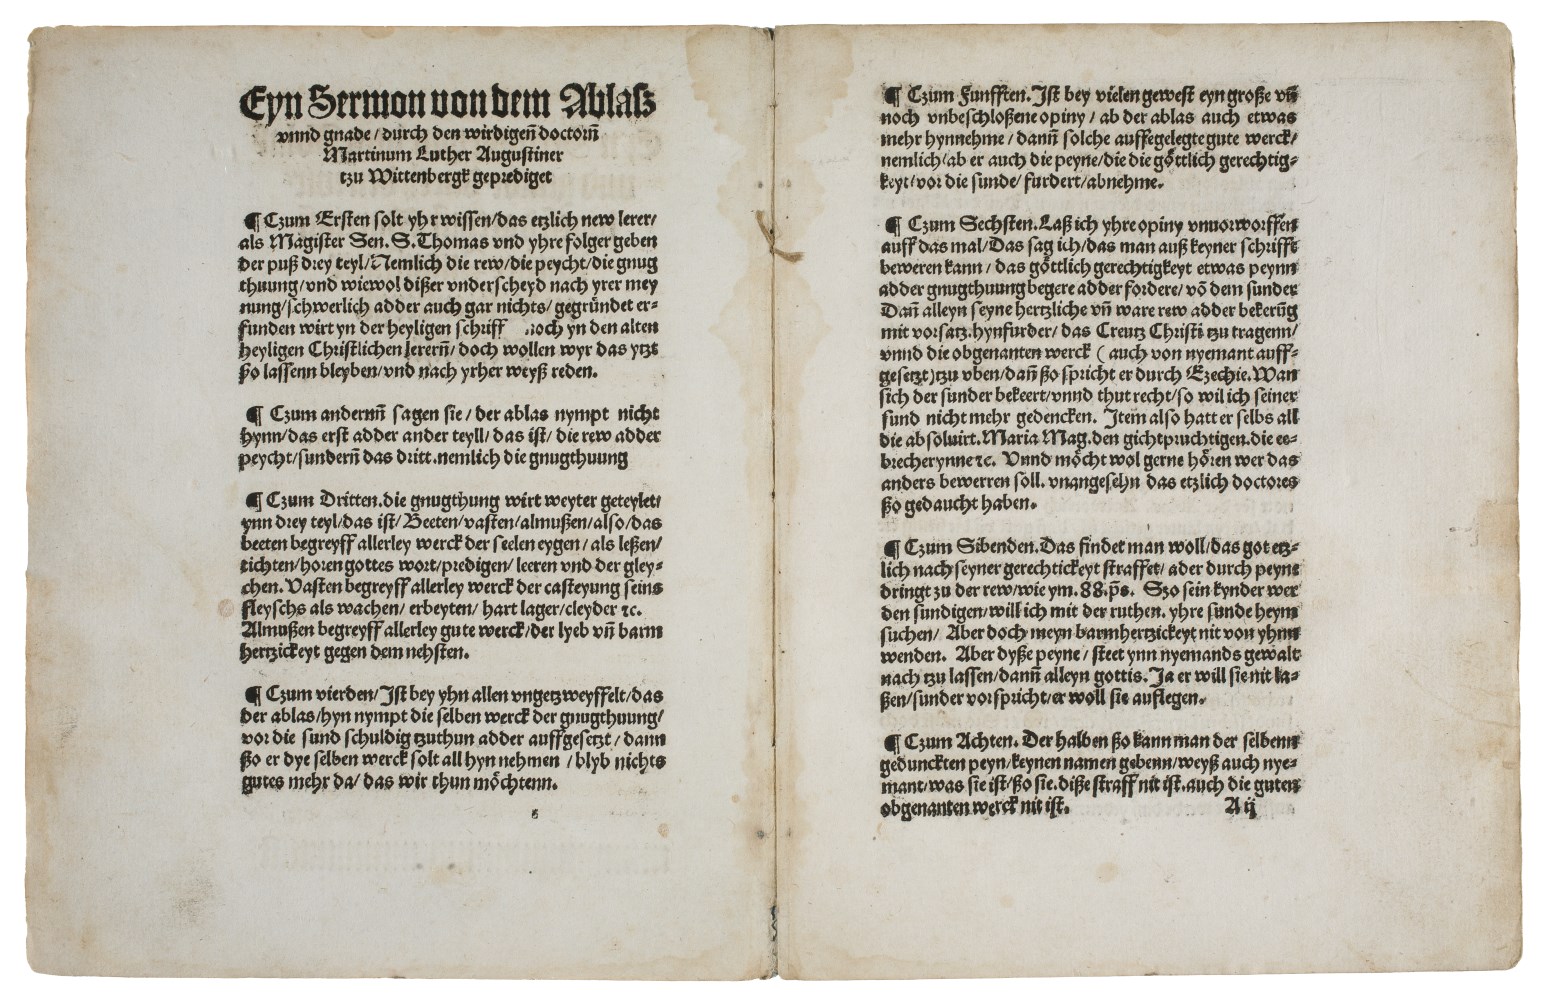 Eyn Sermon von dem Ablasz
vnnd gnade / durch den wirdigen̄ doctorn̄
Martinum Luther Augustiner
tzu Wittenbergk geprediget
¶ Czum Ersten solt yhr wissen/das etzlich new lerer/
als Magister Sen. S. Thomas vnd yhre folger geben
der puß drey teyl/Nemlich die rew/die peycht/die gnug
thuung/vnd wiewol dißer vnderscheyd nach yrer mey
nung/schwerlich adder auch gar nichts/ gegründet er⸗
funden wirt yn der heyligen schriff noch yn den alten
heyligen Christlichen lerern̄/ doch wollen wyr das ytzt
ßo lassenn bleyben/vnd nach yrher weyß reden.
¶ Czum andernn̄ sagen sie / der ablas nympt nicht
hynn/das erst adder ander teyll/ das ist/ die rew adder
peycht/sundern̄ das dritt.nemlich die gnugthuung
¶ Czum Dritten.die gnugthung wirt weyter geteylet/
ynn drey teyl/das ist/ Beeten/vasten/almußen/also/das
beeten begreyff allerley werck der seelen eygen / als leßen/
tichten/horen gottes wort/predigen/ leeren vnd der gley⸗
chen. Vasten begreyff allerley werck der casteyung seins
fleyschs als wachen/ erbeyten/ hart lager/cleyder ⁊c.
Almußen begreyff allerley gute werck/der lyeb vn̄ barm
hertzickeyt gegen dem nehsten.
¶ Czum vierden/Ist bey yhn allen vngetzweyffelt/das
der ablas/hyn nympt die selben werck der gnugthuung/
vor die sund schuldig tzuthun adder auffgesetzt / dann
ßo er dye selben werck solt all hyn nehmen / blyb nichts
gutes mehr da/ das wir thun möchtenn.
¶ Czum Funfften. Ist bey vielen gewest eyn große vn̄
noch vnbeschloßene opiny / ab der ablas auch etwas
mehr hynnehme / dann̄ solche auffegelegte gute werck/
nemlich/ab er auch die peyne/die die göttlich gerechtig⸗
keyt/vor die sunde/ furdert/abnehme.
¶ Czum Sechsten. Laß ich yhre opiny vnuorworffen
auff das mal/Das sag ich/das man auß keyner schrifft
beweren kann / das göttlich gerechtigkeyt etwas peynn
adder gnugthuung begere adder fordere/ vō dem sunder
Dan̄ alleyn seyne hertzliche vn̄ ware rew adder bekerūg
mit vorsatz.hynfurder/ das Creutz Christi tzu tragenn/
vnnd die obgenanten werck ( auch von nyemant auff⸗
gesetzt)tzu vben/dan̄ ßo spricht er durch Ezechie.Wan
sich der sunder bekeert/vnnd thut recht/so wil ich seiner
sund nicht mehr gedencken. Item also hatt er selbs all
die absoluirt. Maria Mag.den gichtpruchtigen.die ee⸗
brecherynne ⁊c. Vnnd möcht wol gerne hören wer das
anders bewerren soll. vnangesehn das etzlich doctores
ßo gedaucht haben.
¶ Czum Sibenden.Das findet man woll/das got etz⸗
lich nach seyner gerechtickeyt straffet/ ader durch peyne
dringt zu der rew/wie ym. 88.p̄s. Szo sein kynder wer
den sundigen/will ich mit der ruthen. yhre sunde heym
suchen/ Aber doch meyn barmhertzickeyt nit von yhnn
wenden. Aber dyße peyne / steet ynn nyemands gewalt
nach tzu lassen/dann̄ alleyn gottis. Ja er will sie nit la⸗
ßen/sunder vorspricht/er woll sie auflegen.
¶ Czum Achten. Der halben ßo kann man der selbenn
gedunckten peyn/keynen namen gebenn/weyß auch nye⸗
mant/was sie ist/ßo sie.diße straff nit ist.auch die guten
obgenanten werck nit ist. A ij